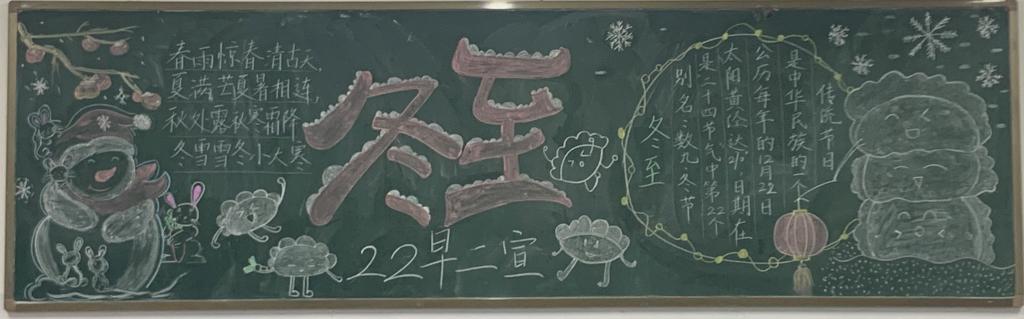 春雨惊春清古天,
夏满芒夏暑相连,
秋处露秋寒霜降
冬雪雪冬小大寒
冬至
22早二宣
冬至
别名:数九冬节
是二十四节气中第22个
太阳黄经达 日期在
公历年年的12月22日
是中华民族的一个
传统节日